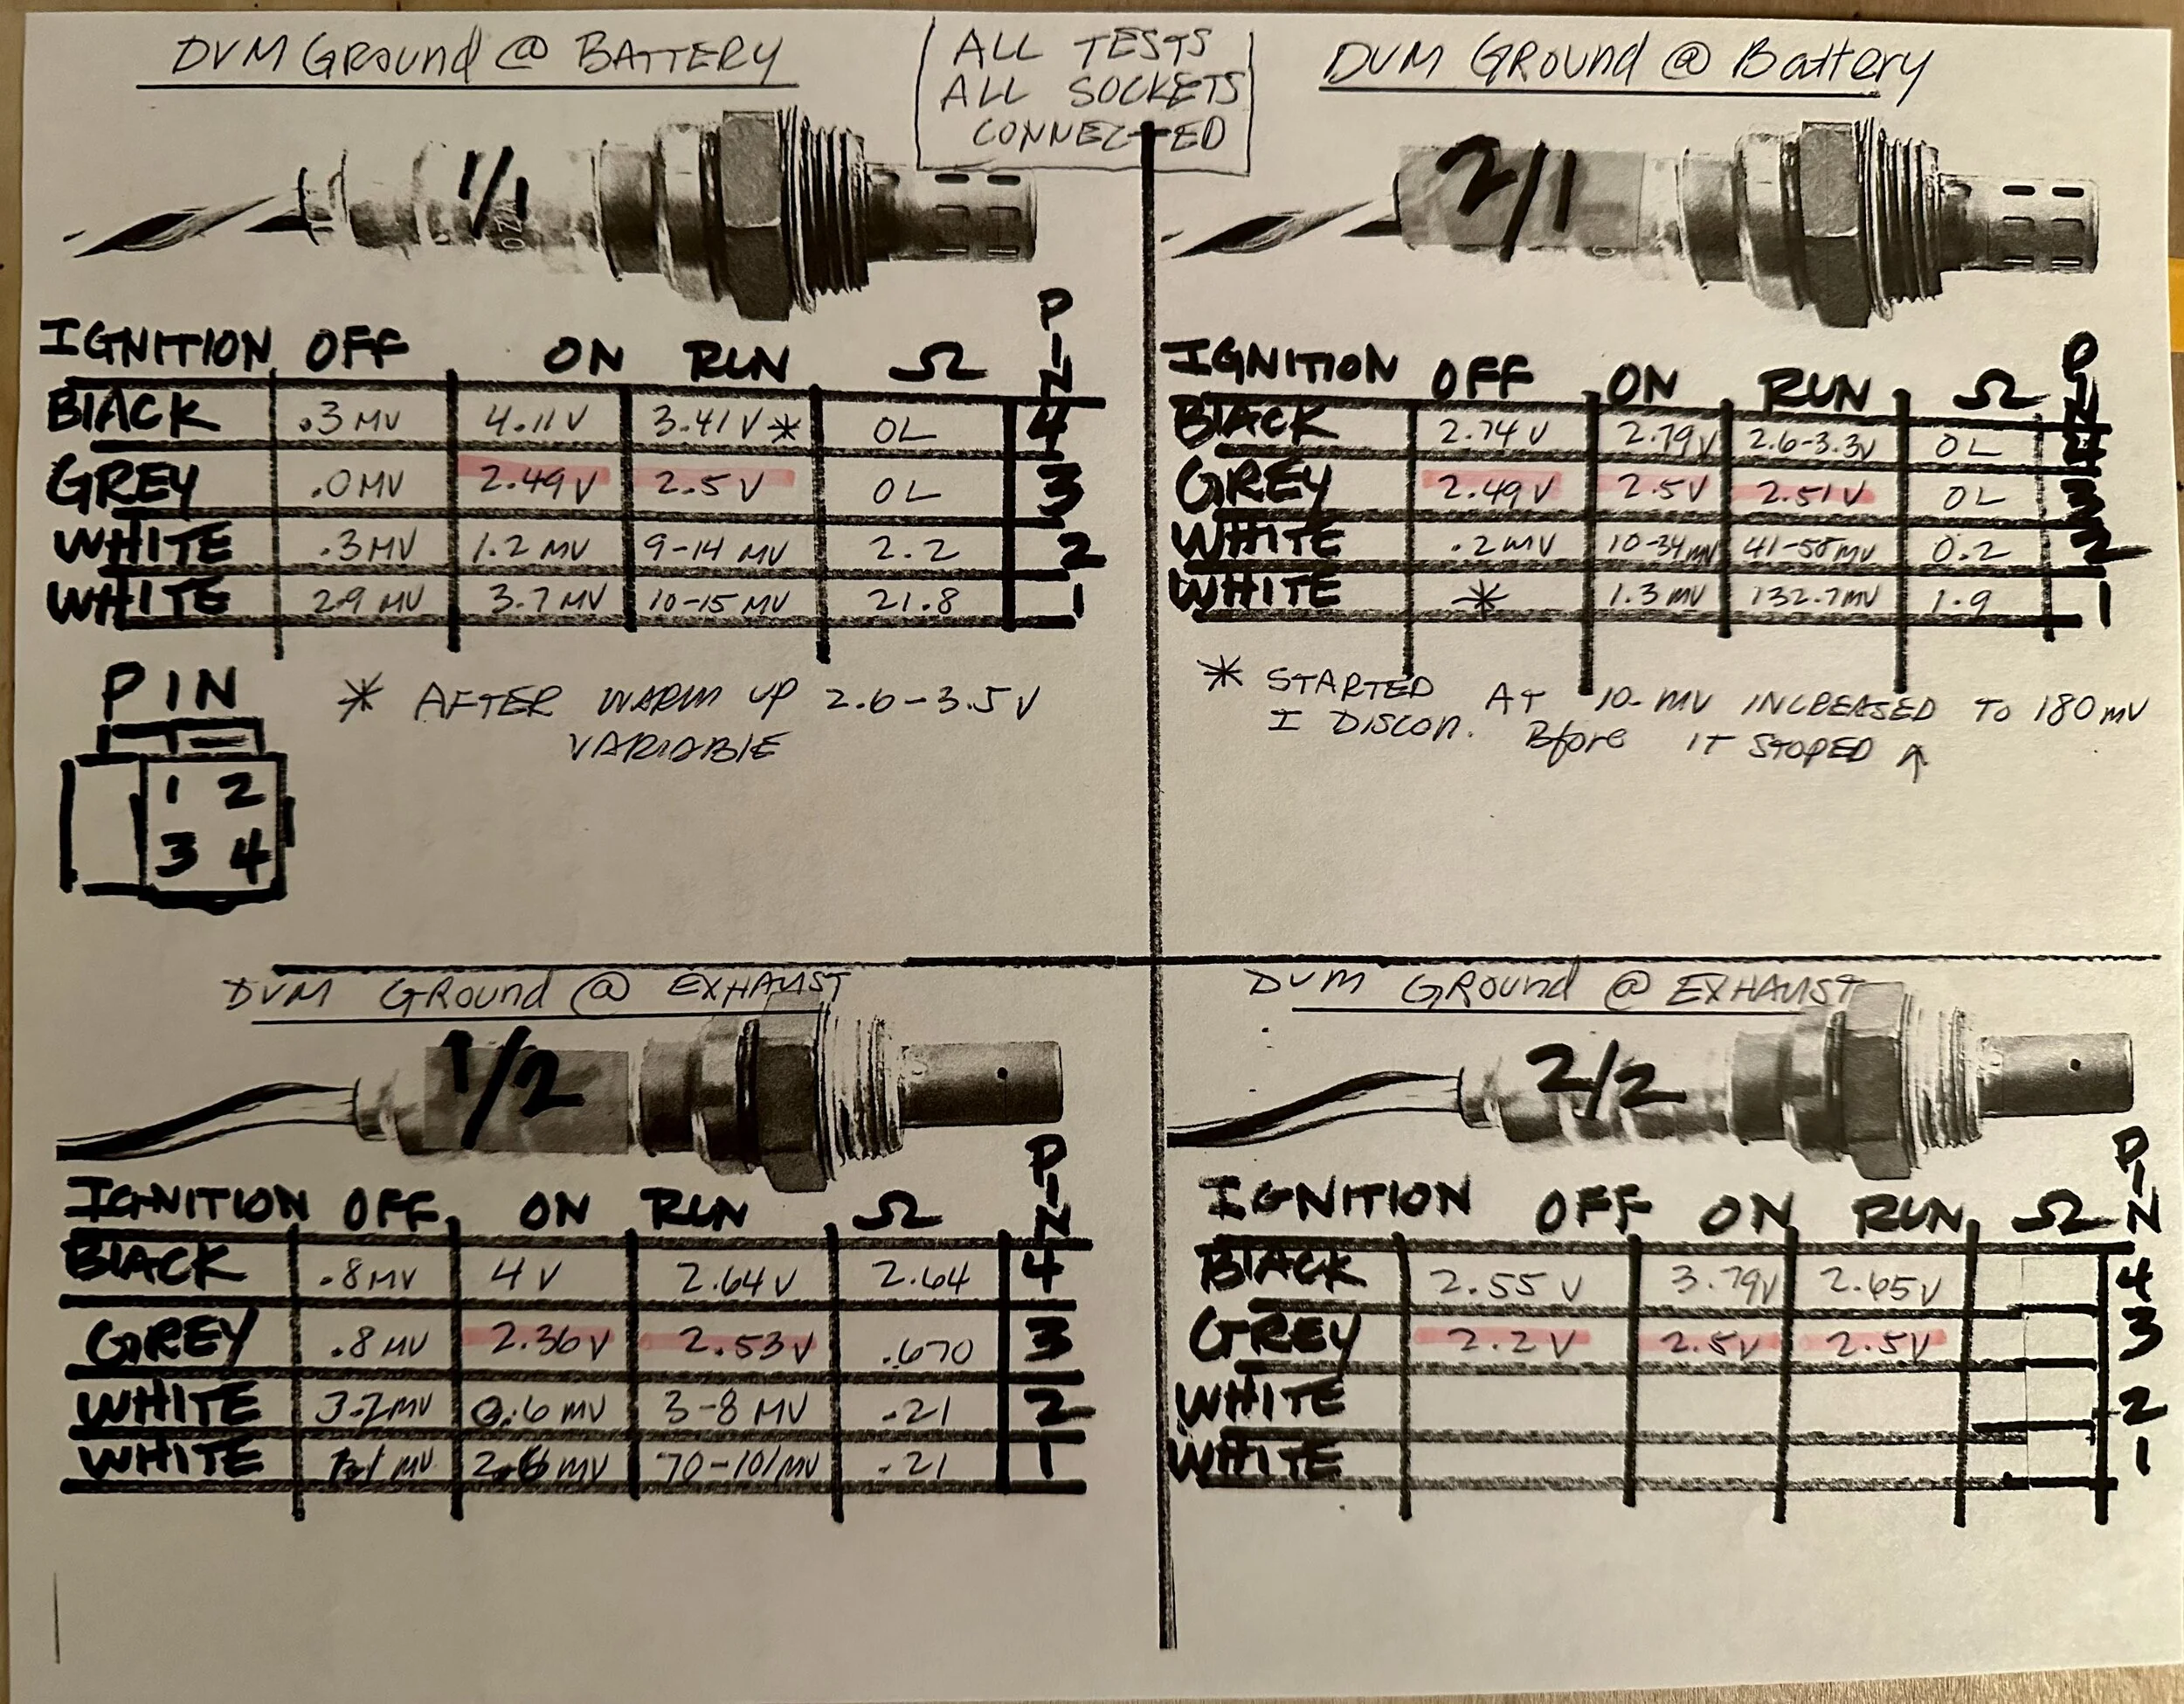 DVM GROUND @ BATTERY
ALL TESTS
ALL SOCKETS
CONNECTED
DVM GROUND @ Battery
1/1
2/1
IGNITION OFF ON RUN Ω PIN
BLACK .3 MV 4.11 V 3.41 V * OL 4
GREY .0 MV 2.49 V 2.5 V OL 3
WHITE .3 MV 1.2 MV 9-14 MV 2.2 2
WHITE 2.9 MV 3.7 MV 10-15 MV 21.8 1
PIN
1 2
3 4
* AFTER WARM UP 2.6-3.5 V
VARIABLE
IGNITION OFF ON RUN Ω PIN
BLACK 2.74 V 2.79 V 2.6-3.3V OL 4
GREY 2.49 V 2.5V 2.51 V OL 3
WHITE .2 MV 10-34 MV 41-58 MV 0.2 2
WHITE * 1.3 MV 132.7MV 1.9 1
* STARTED AT 10-MV INCREASED TO 180 MV
I DISCON. Bfore IT STOPED ↑
DVM GROUND @ EXHAUST
1/2
IGNITION OFF ON RUN Ω PIN
BLACK .8 MV 4 V 2.64 V 2.64 4
GREY .8 MV 2.36 V 2.53 V .670 3
WHITE 3.2 MV 0.6 MV 3-8 MV .21 2
WHITE MV 2.6 MV 70-101 MV .21 1
DVM GROUND @ EXHAUST
2/2
IGNITION OFF ON RUN Ω PIN
BLACK 2.55 V 3.79V 2.65V 4
GREY 2.2 V 2.5V 2.5V 3
WHITE 2
WHITE 1